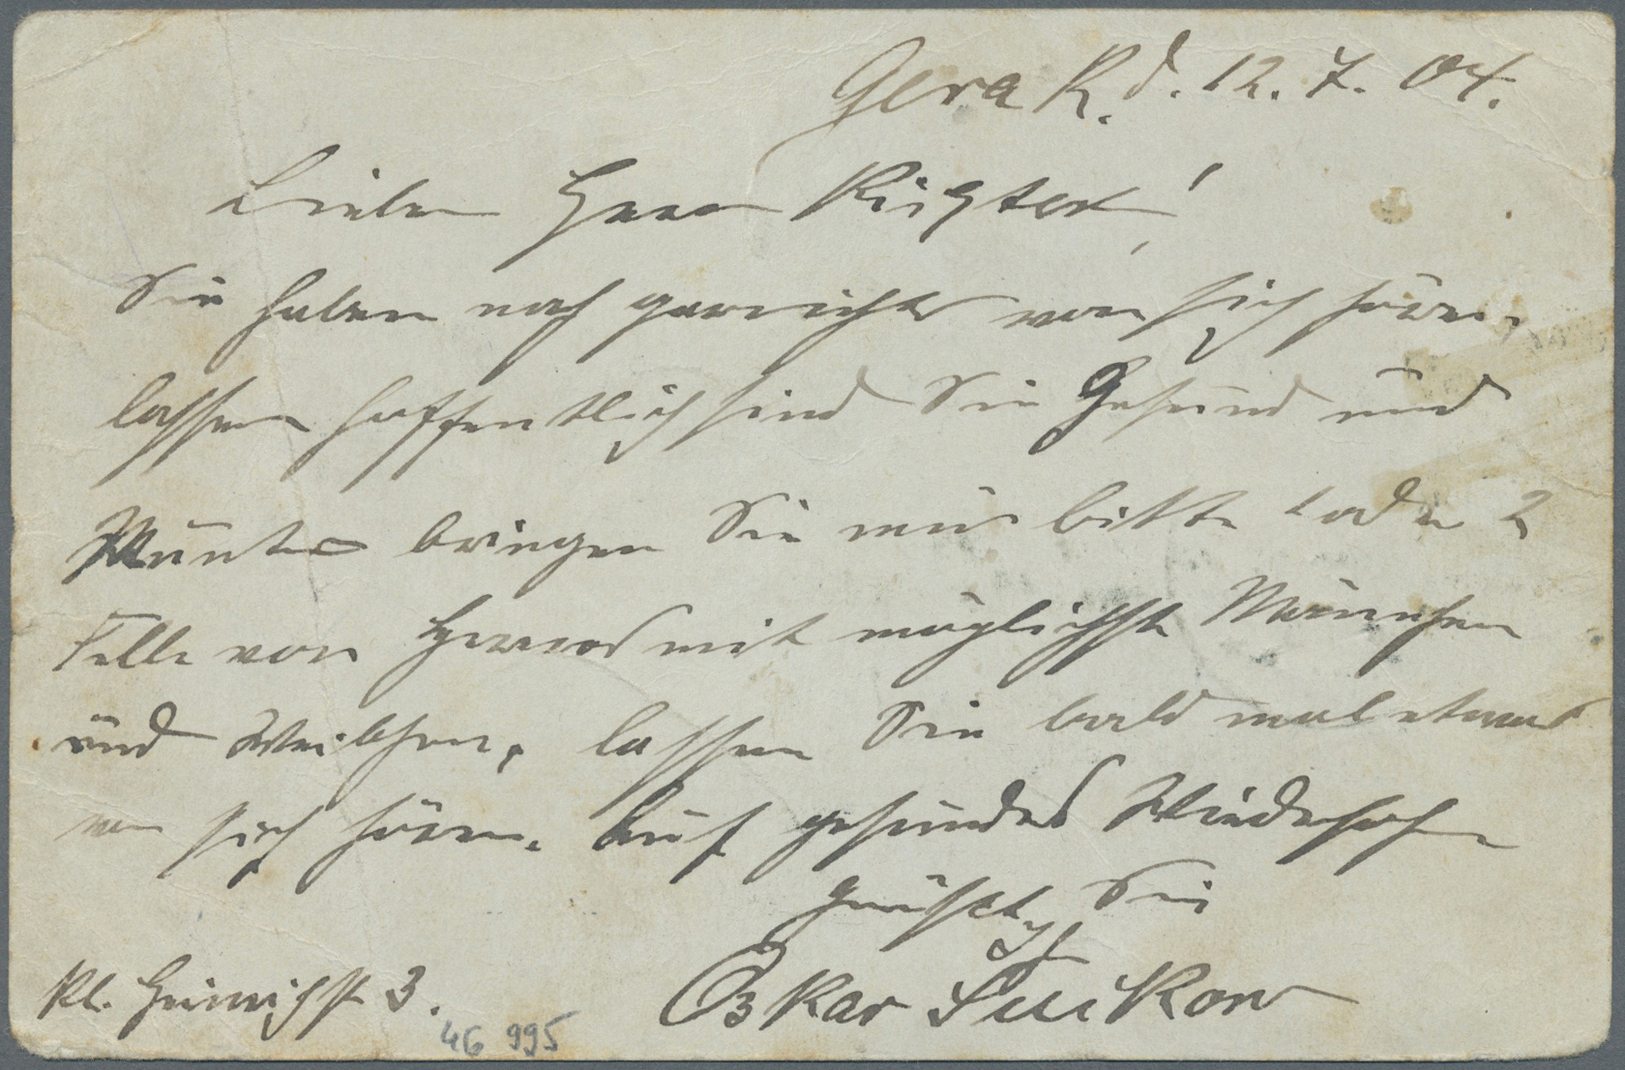 Gera R. d. 12. 7. 04.
Lieber Herr Richter!
Sie haben noch garnichts von sich hören
lassen hoffentlich sind Sie Gesund und
Munter bringen Sie mir bitte 2
Felle von mit möglichst Männchen
und Weibchen, lassen Sie bald mal etwas
von sich hören. Auf gesundes Wiedersehn
grüßt Sie
Oskar
Kl. Heinrichstr 3.
46 995